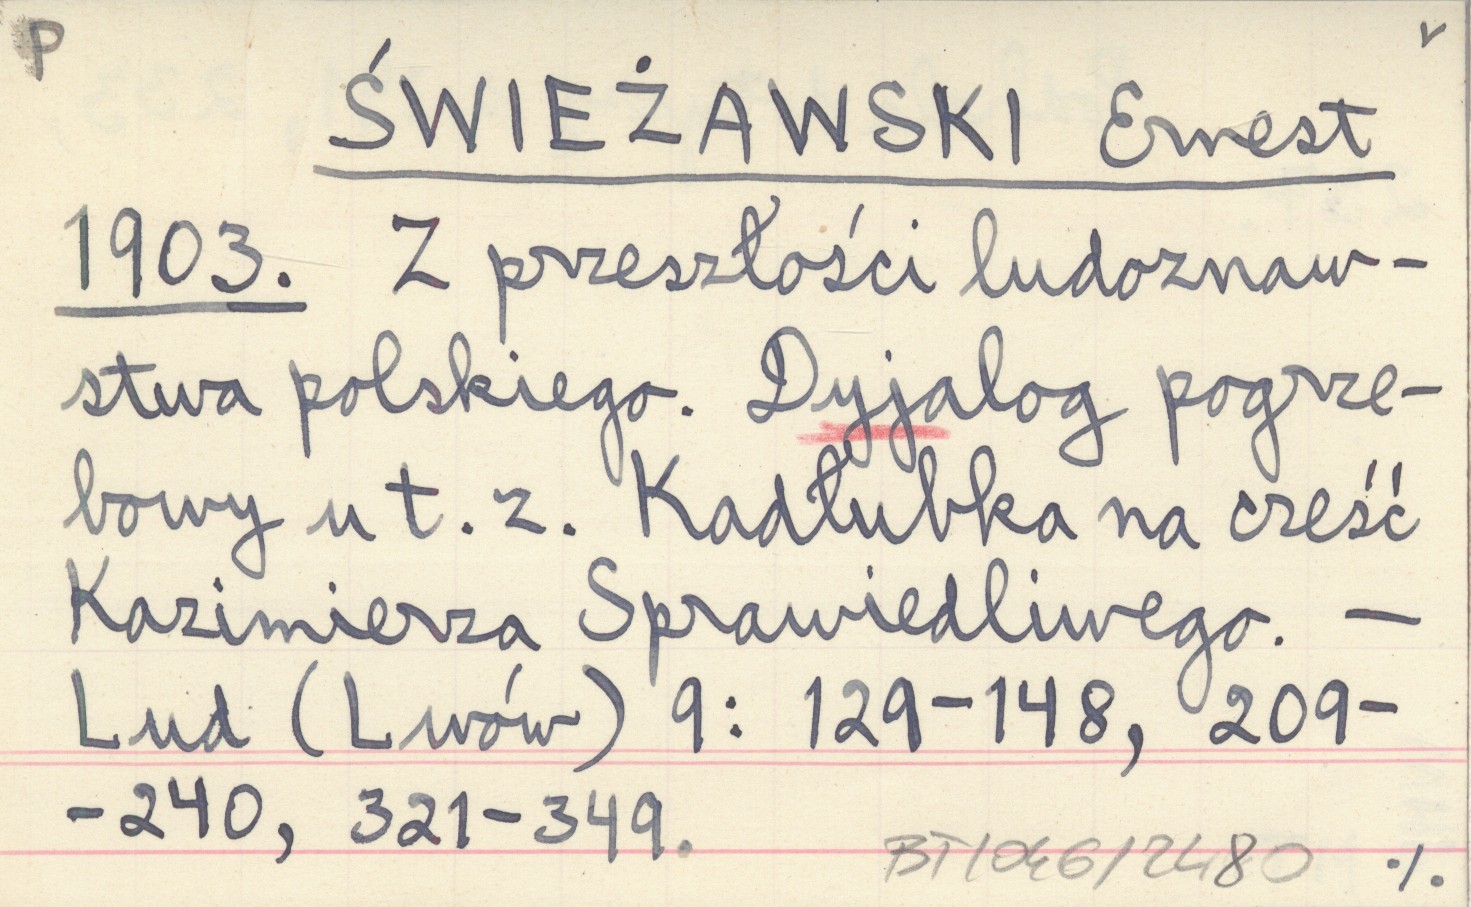 P
v
ŚWIEŻAWSKI Ernest
1903. Z przeszłości ludoznaw-
stwa polskiego. Dyjalog pogrze-
bowy u t. z. Kadłubka na cześć
Kazimierza Sprawiedliwego. —
Lud (Lwów) 9: 129-148, 209-
-240, 321-349.
BT/046/2480 ./.